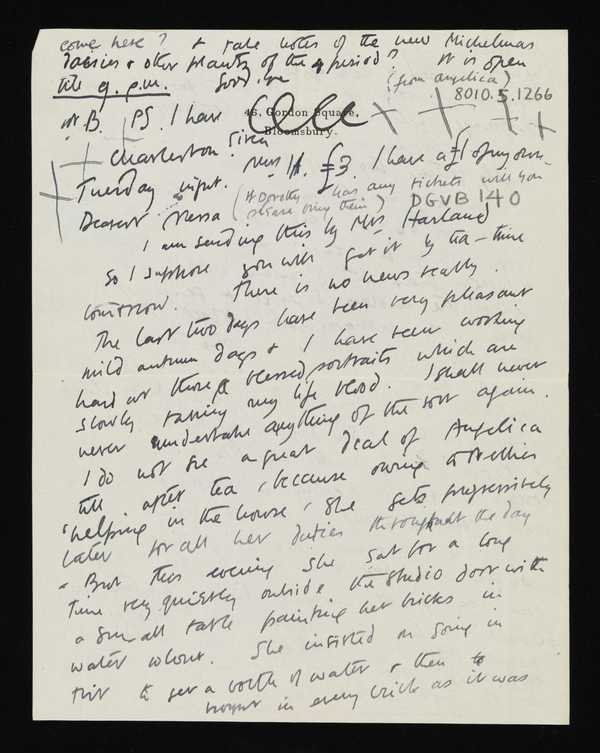 come here? & take notes of the new Michelmas
daisies & other plants of the period? It is open
till 9. p.m. Good.
(from Angelica)
8010.5.1266
N B. PS. I have
46, Gordon Square,
Bloomsbury.
Charleston. given
Tuesday night. Mrs H. £3. I have a £1 of my own.
Dearest Nessa (If Dorothy has any tickets will you
please bring them) DGVB 140
I am sending this by Mrs Harland
so I suppose you will get it by tea-time
tomorrow. There is no news really.
The last two days have been very pleasant
mild autumn days & I have been working
hard at those blessed portraits which are
slowly taking my life blood. I shall never
never undertake anything of the sort again.
I do not see a great deal of Angelica
till after tea, because owing to Nellies
'helping in the house, she gets progressively
later for all her duties throughout the day
. But this evening she sat for a long
time very quietly outside the studio door with
a small table painting her bricks in
water colour. She insisted on going in
first to get a bottle of water & then to
in every brick as it was